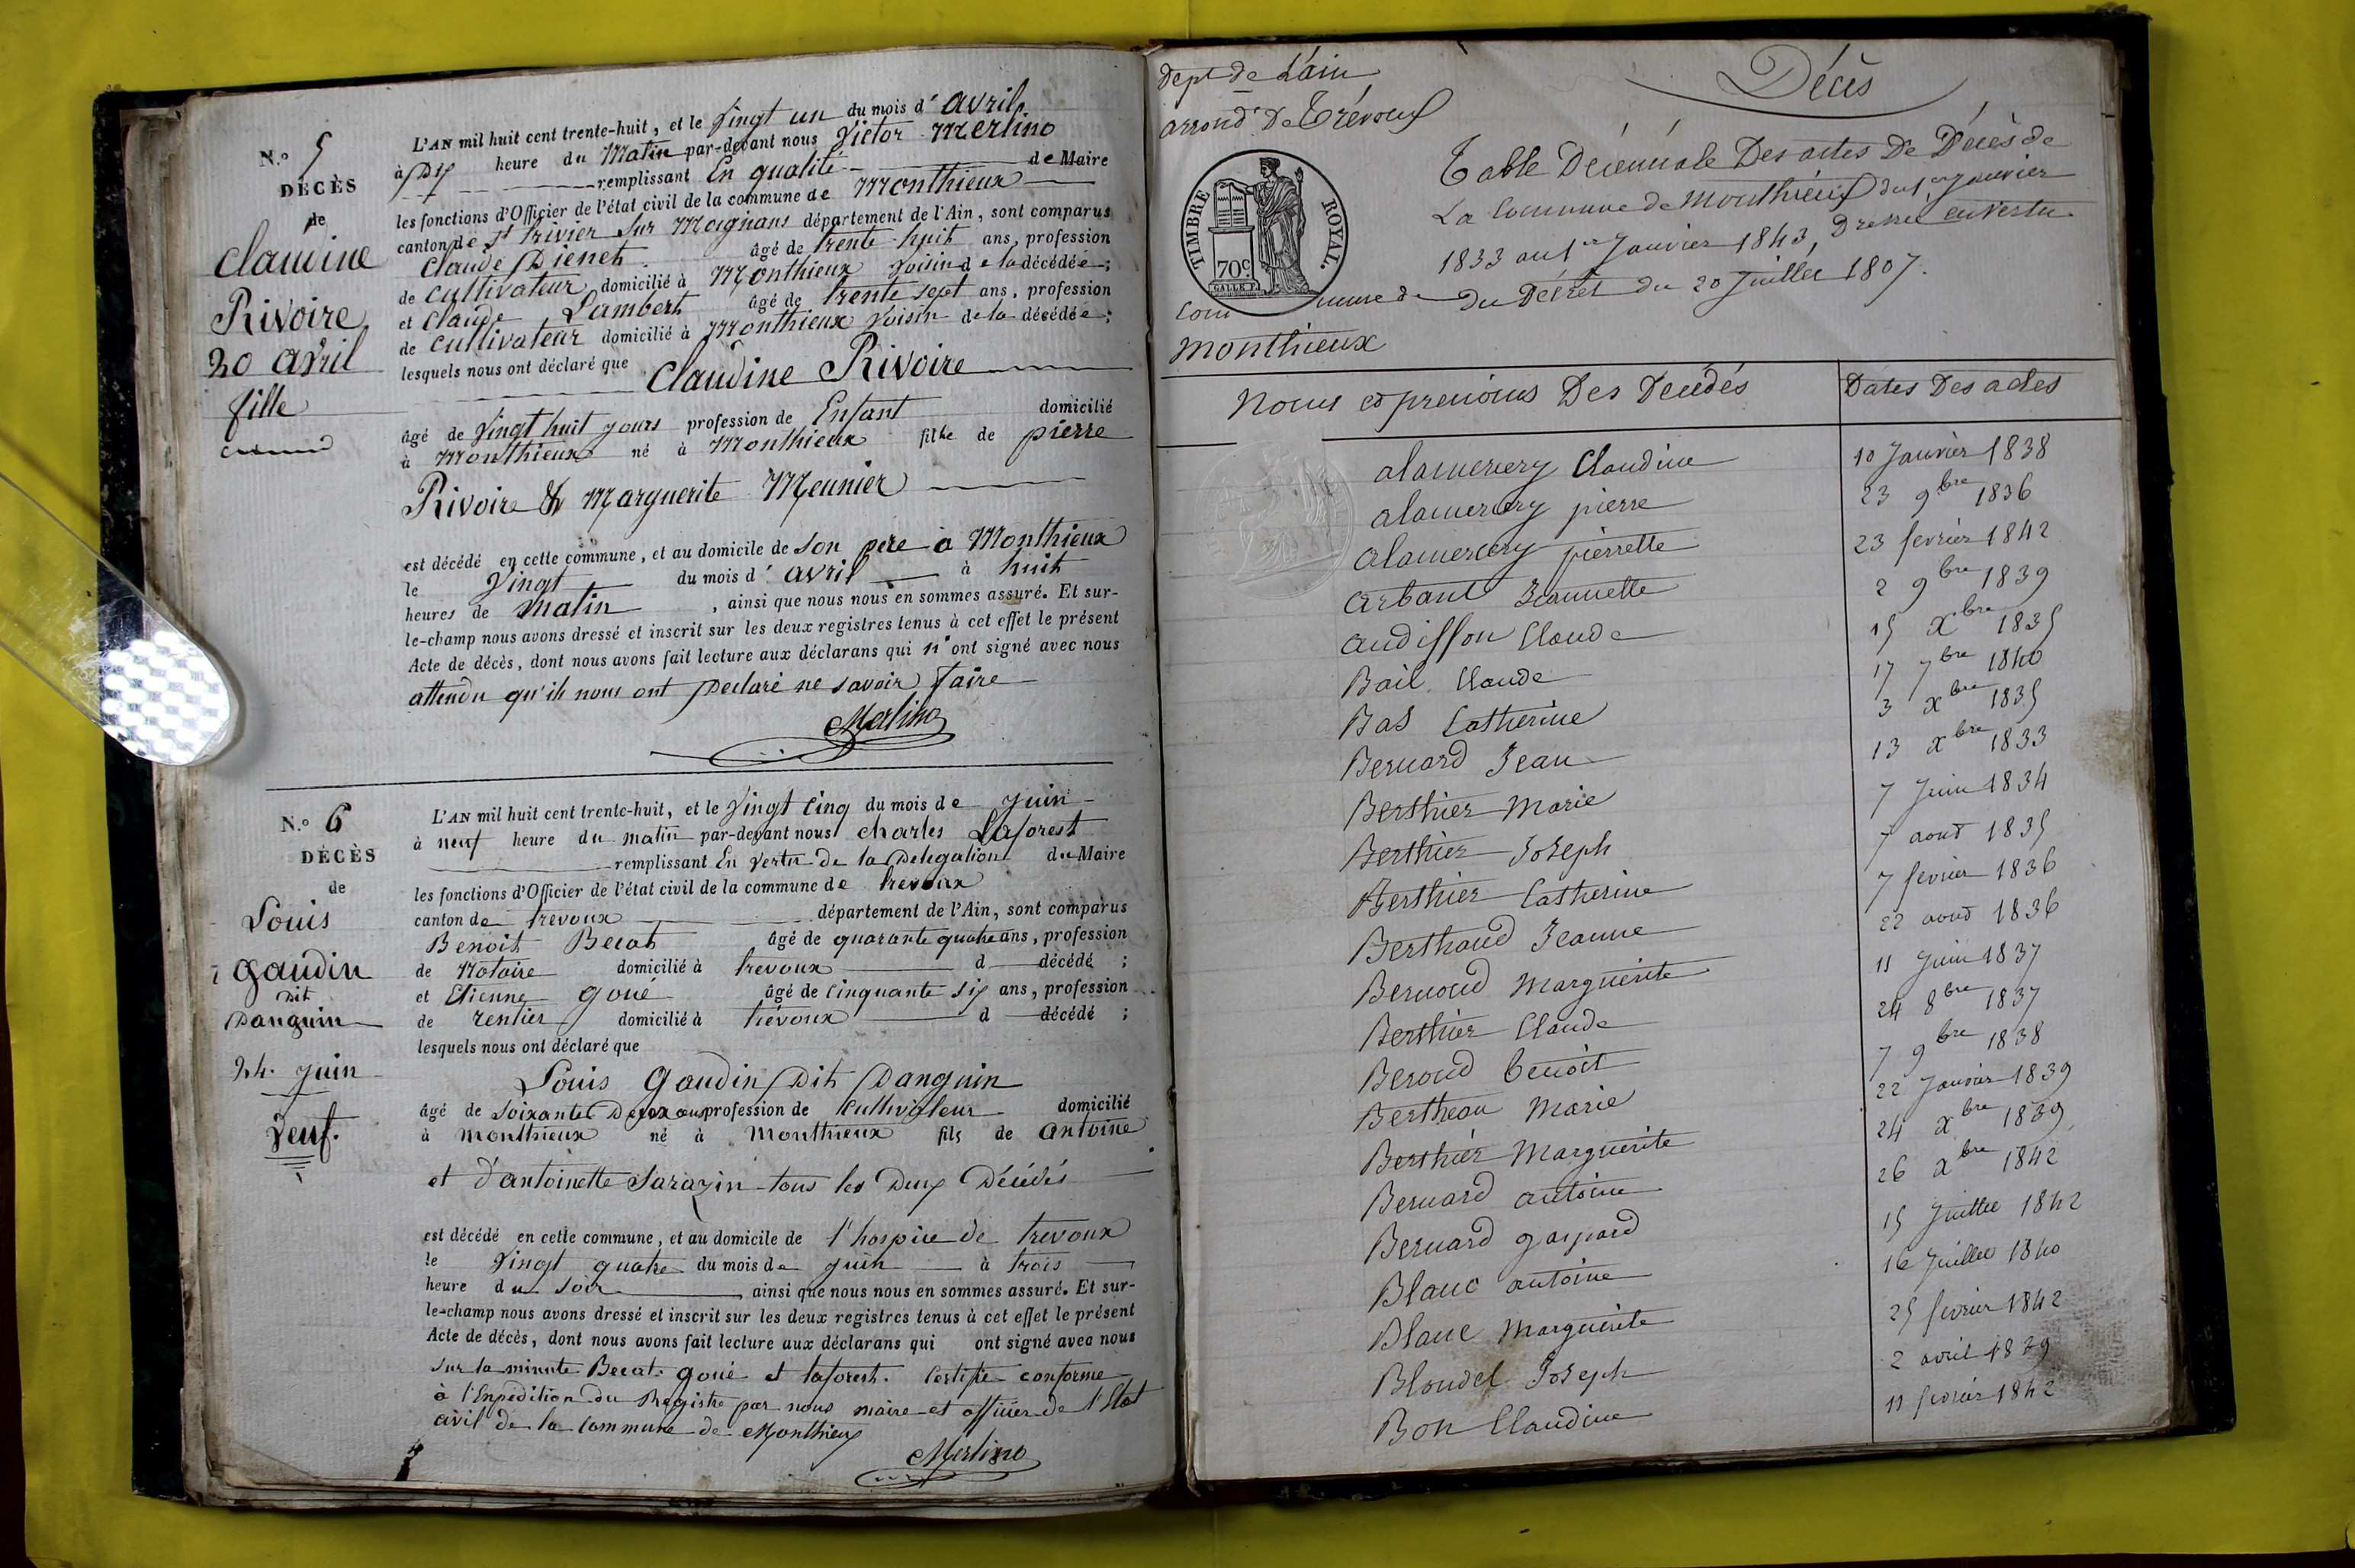 N.° 5
DÉCÈS
de
Claudine
Rivoire
20 avril
fille
L'AN mil huit cent trente-huit, et le vingt un du mois d' avril
à Dix heure du Matin par-devant nous Victor Merlino
remplissant En qualité de Maire
les fonctions d'Officier de l'état civil de la commune de Monthieux
canton de St trivier Sur Moignans département de l'Ain, sont comparus
Claude Dienet âgé de trente huit ans, profession
de Cultivateur domicilié à Monthieux voisin de la décédée ;
et Claude Lambert âgé de trente sept ans, profession
de Cultivateur domicilié à Monthieux voisin de la décédée ;
lesquels nous ont déclaré que Claudine Rivoire
âgé de vingt huit jours profession de Enfant domicilié
à Monthieux né à Monthieux fille de pierre
Rivoire & Marguerite Meunier
est décédé en cette commune, et au domicile de son père à Monthieux
le vingt du mois d' avril à huit
heures de matin , ainsi que nous nous en sommes assuré. Et sur-
le-champ nous avons dressé et inscrit sur les deux registres tenus à cet effet le présent
Acte de décès, dont nous avons fait lecture aux déclarans qui n' ont signé avec nous
attendu qu'ils nous ont Declaré ne savoir faire
Merlino
N.° 6
DÉCÈS
de
Louis
gaudin
dit
Danguin
24. juin
Veuf.
L'AN mil huit cent trente-huit, et le vingt cinq du mois de juin
à neuf heure du matin par-devant nous charles Laforest
remplissant En vertu de la Delegation du Maire
les fonctions d'Officier de l'état civil de la commune de trevoux
canton de trevoux département de l'Ain, sont comparus
Benoit Becat âgé de quarante quatre ans, profession
de Notaire domicilié à trevoux d décédé ;
et Etienne goué âgé de cinquante six ans, profession
de rentier domicilié à trévoux d décédé ;
lesquels nous ont déclaré que
Louis Gaudin Dit Danguin
âgé de soixante Deux ans profession de cultivateur domicilié
à monthieux né à monthieux fils de antoine
et d'antoinette Sarazin tous les Deux Décédés
est décédé en cette commune, et au domicile de l'hospice de trevoux
le vingt quatre du mois de juin à trois
heure du soir ainsi que nous nous en sommes assuré. Et sur-
le-champ nous avons dressé et inscrit sur les deux registres tenus à cet effet le présent
Acte de décès, dont nous avons fait lecture aux déclarans qui ont signé avec nous
sur la minute Becat. goué et laforest. Certifié conforme
à l'Expédition du Registre par nous maire et officier de l'Etat
civil de la commune de Monthieux
Merlino
Dept de L'ain
arrond.t De Trévoux
TIMBRE ROYAL.
70c
Commune de
Monthieux
Décès
Table Décennale Des actes De Décès de
La Commune de Monthieux du 1er Janvier
1833 au 1er Janvier 1843, Dressé en vertu
du Décret du 20 Juillet 1807.
Noms et prenoms Des Décédés Dates Des actes
alamercery Claudine 10 Janvier 1838
alamercery pierre 23 9bre 1836
alamercery pierrette 23 fevrier 1842
arbant Jeannette 2 9bre 1839
audisson Claude 15 Xbre 1835
Bail Claude 17 7bre 1840
Bas Catherine 3 Xbre 1835
Bernard Jean 13 Xbre 1833
Berthier Marie 7 Juin 1834
Berthier Joseph 7 août 1835
Berthier Catherine 7 fevrier 1836
Berthaud Jeanne 22 août 1836
Bernoud Marguerite 11 Juin 1837
Berthier Claude 24 8bre 1837
Beroud benoit 7 9bre 1838
Bertheau Marie 22 Janvier 1839
Berthier Marguerite 24 Xbre 1839
Bernard antoine 26 Xbre 1842
Bernard gaspard 15 Juillet 1842
Blanc antoine 16 Juillet 1840
Blanc Marguerite 25 fevrier 1842
Blondel Joseph 2 avril 1839
Bon Claudine 11 fevrier 1842